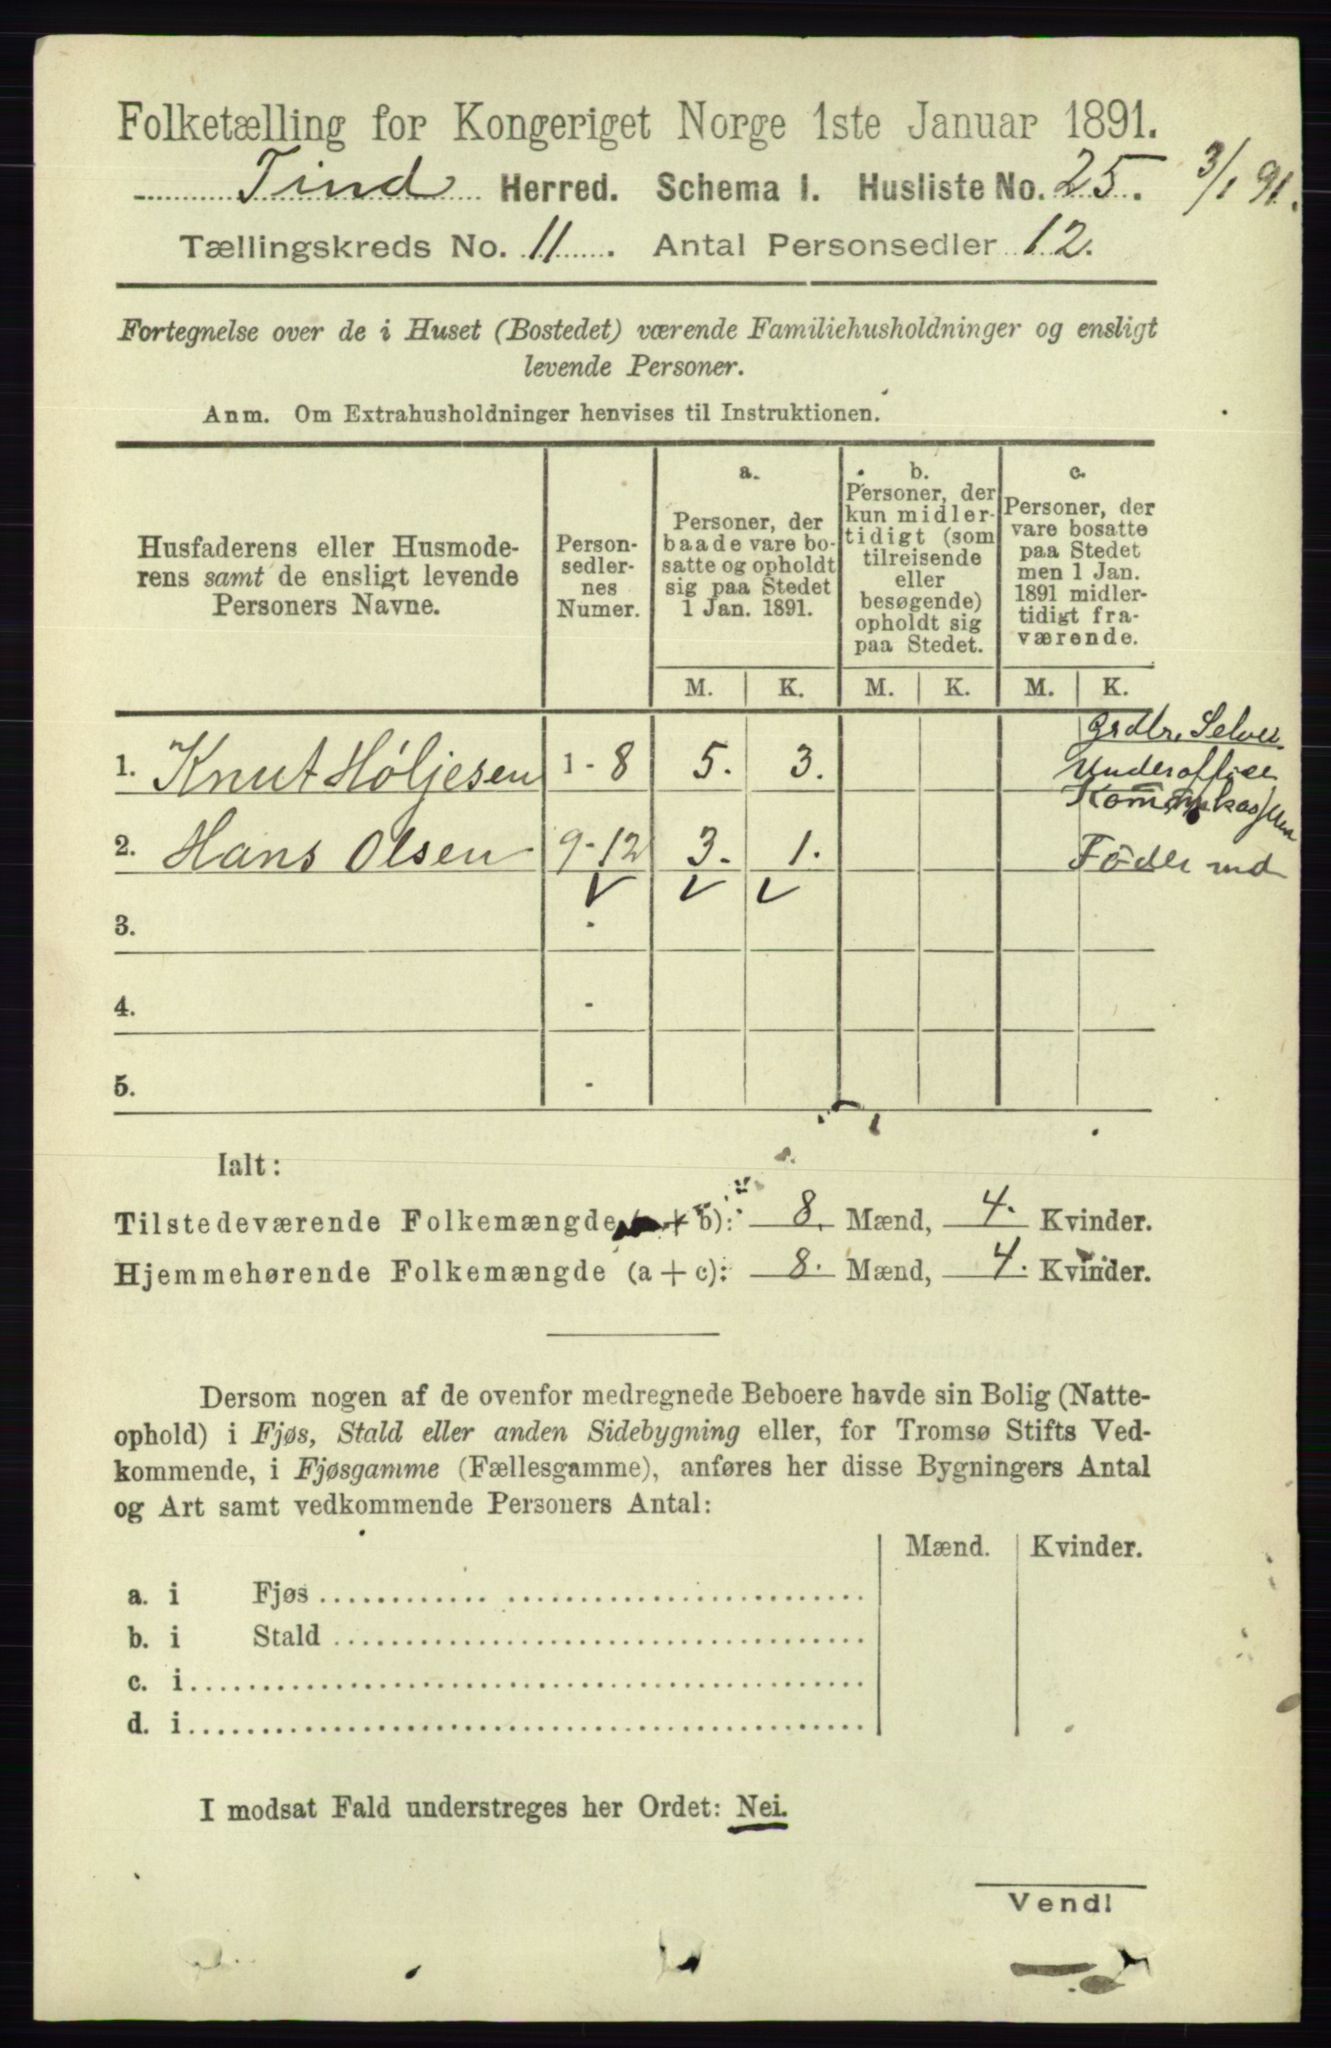 Folketælling for Kongeriget Norge 1ste Januar 1891.
Tind Herred. Schema 1. Husliste No. 25. 3/1 91.
Tællingskreds No. 11. Antal Personsedler 12.
Fortegnelse over de i Huset (Bostedet) værende Familiehusholdninger og ensligt
levende Personer.
Anm. Om Extrahusholdninger henvises til Instruktionen.
Husfaderens eller Husmode-
rens samt de ensligt levende
Personers Navne.
Person-
sedler-
nes
Numer.
a.
Personer, der
baade vare bo-
satte og opholdt
sig paa Stedet
1 Jan. 1891.
b.
Personer, der
kun midler-
tidigt (som
tilreisende
eller
besøgende)
opholdt sig
paa Stedet.
c.
Personer, der
vare bosatte
paa Stedet
men 1 Jan.
1891 midler-
tidigt fra-
værende.
M. K. M. K. M. K.
Grdbr, Selvei.
1. Knut Høljesen 1 - 8 5. 3. Underoffice
2. Hans Olsen 9 - 12 3. 1.
3. -
4. -
5. -
Ialt:
Tilstedeværende Folkemængde (a + b): 8. Mænd, 4. Kvinder.
Hjemmehørende Folkemængde (a + c): 8. Mænd, 4. Kvinder.
Dersom nogen af de ovenfor medregnede Beboere havde sin Bolig (Natte-
ophold) i Fjøs, Stald eller anden Sidebygning eller, for Tromsø Stifts Ved-
kommende, i Fjøsgamme (Fællesgamme), anføres her disse Bygningers Antal
og Art samt vedkommende Personers Antal:
Mænd. Kvinder.
a. i Fjøs
b. i Stald
c. i
d. i
I modsat Fald understreges her Ordet: Nei.
Vend!